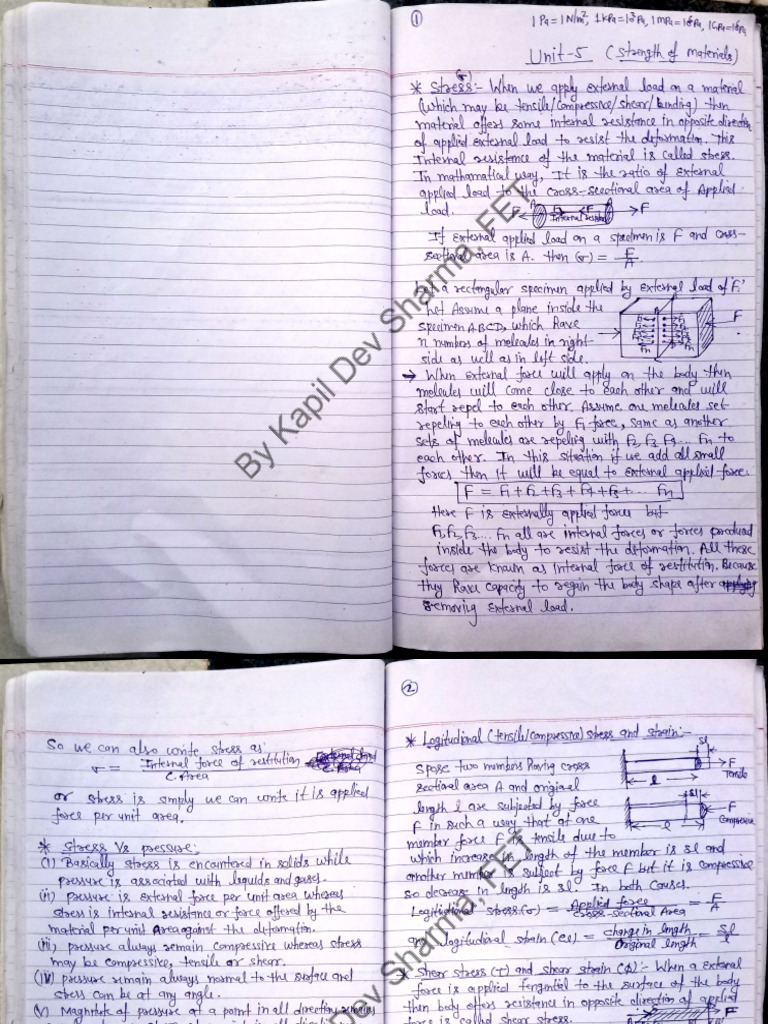 ①
1 Pa = 1 N/m², 1 kPa = 10³ Pa, 1 mPa = 10⁶ Pa, 1 GPa = 10⁹ Pa
Unit-5 (Strength of materials)
* Stress (σ):- When we apply external load on a material
(which may be tensile/compressive/shear/bending) then
material offers some internal resistance in opposite direction
of applied external load to resist the deformation. This
Internal resistence of the material is called stress.
In mathamatical way, It is the ratio of External
applied load to the cross-sectional area of Applied
load.
F
Internal resista
F
If External applied load on a specimen is F and cross-
sectional area is A. then (σ) = F/A.
Let a rectangular specimen applied by External load of 'F'.
Let Assume a plane inside the
specimen ABCD, which have
n numbers of melecules in right
side as well as in left side.
F
→ When External force will apply on the body then
melecules will come close to each other and will
start repel to each other. Assume one melecules set
repeling to each other by F1 force, same as another
sets of melecules are repeling with F2, F3, F4... Fn to
each other. In this situation if we add all small
forces then it will be equal to external applied force.
F = F1+F2+F3+F4+F5+... Fn
Here F is externally applied force but
F1,F2,F3... Fn all are internal forces or forces produced
inside the body to resist the deformation. All these
forces are known as internal force of restitution. Because
they have capacity to regain the body shape after
removing External load.
By Kapil Dev Sharma, FET
So we can also write stress as
σ = Internal force of restitution / C. Area
or stress is simply we can write it is applied
force per unit area.
* Stress Vs pressure:
(i) Basically stress is encountered in solids while
pressure is associated with liquids and gases.
(ii) pressure is external force per unit area whereas
stress is internal resistance or force offered by the
material per unit Area against the deformation.
(iii) pressure always remain compressive whereas stress
may be compressive, tensile or shear.
(iv) pressure remain always normal to the surface and
stress can be at any angle.
(v) Magnitude of pressure at a point in all direction remains
②
* Logitudional (tensile/compressive) stress and strain:-
Spose two members having cross
sectional area A and original
length l are subjected by force
F in such a way that at one
member force F is tensile due to
which increase in length of the member is δl and
another member is subject by force F but it is compressive
so decrease in length is δl. In both Causes.
δl
F
Tensile
l
δl
F
Compressive
l
Logitudional stress (σ) = Applied force / Cross-sectional Area = F/A
and logitudional strain (el) = change in length / Original length = δl/l
* Shear stress (τ) and shear strain (ϕ):- When a External
force is applied tengential to the surface of the body
then body offers resistance in opposite direction of applied
force is called shear stress.
F
Dev Sharma, FET